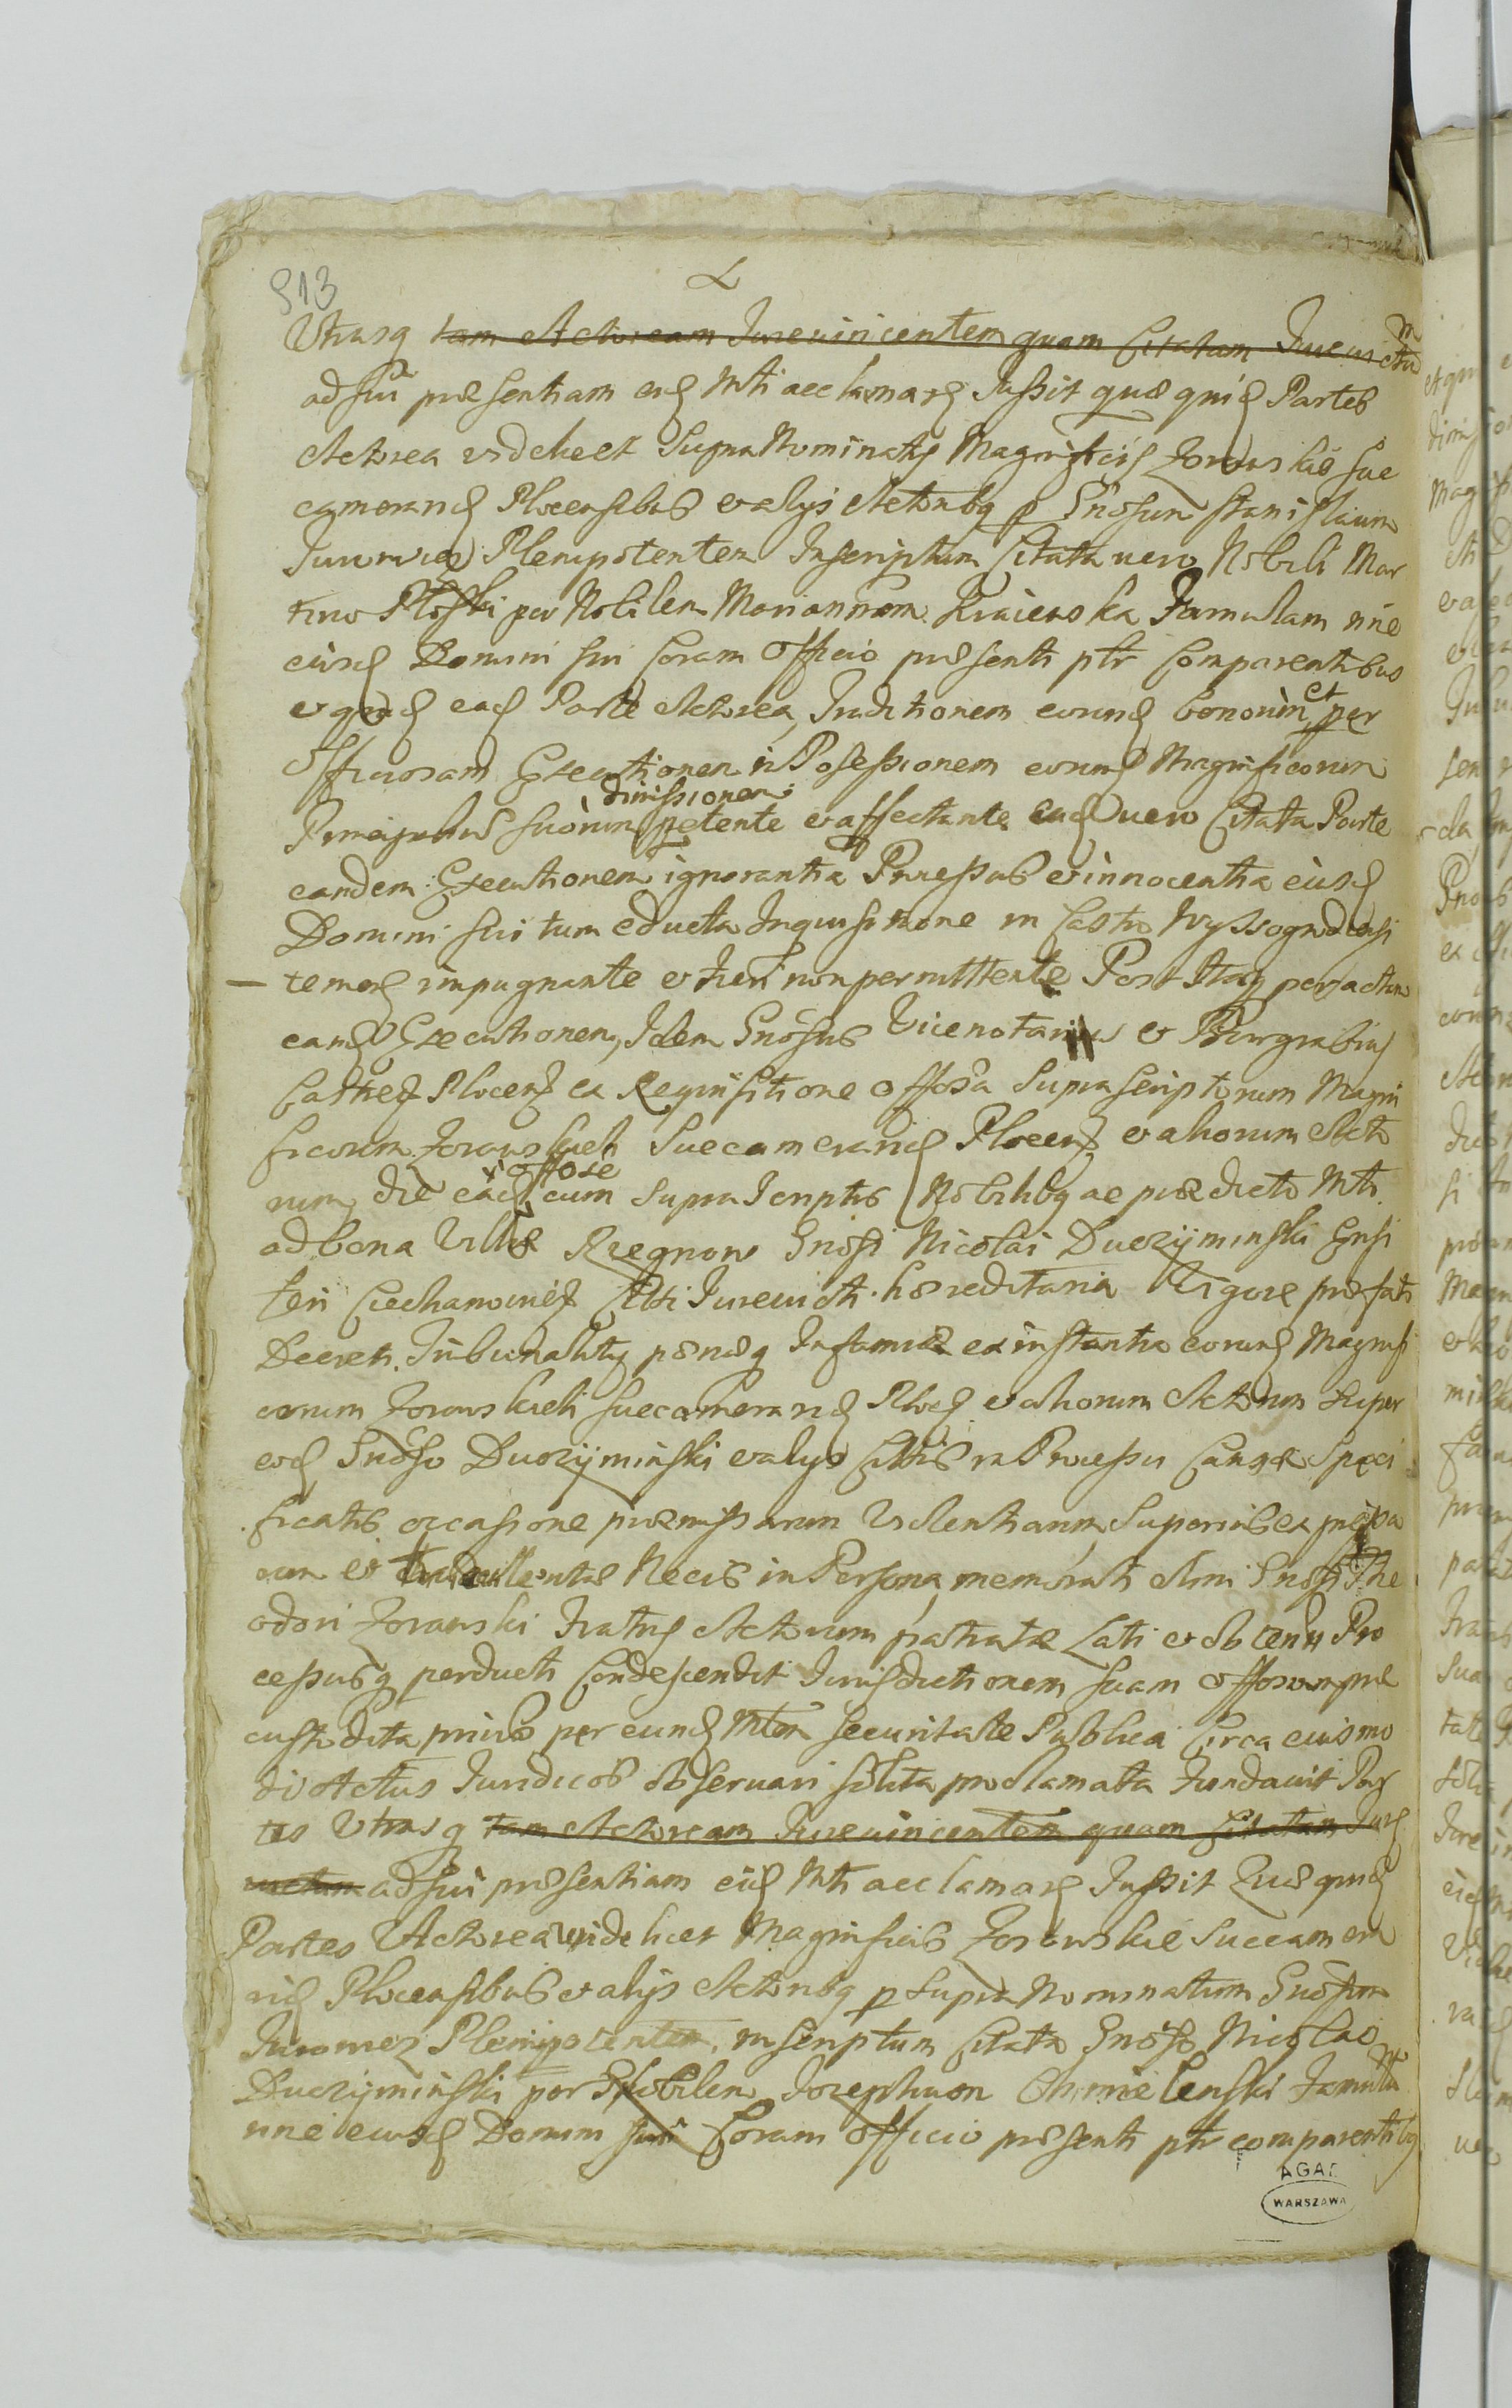 513
Utrasq tam Actoream Jurevincentem quam Citatam Jurevictam
ad sui præsentiam eiq Mti acclamarq Jussit quæ quidq Partes
Actorea videlicet Supra Nominatis Magnificis Zorawskie Suc
camerariq Plocensibus et alys Actoribq p Gnosum Stanislaum
Plenipotentem Inscriptum Citata vero Nobili Mar
tino Ploski per Nobilem Mariannam Famulam nne
eiusq Domini sui Coram Officio præsenti ptr Comparentibus
et quidq eaq Parte Actorea, Traditionem eorunq bonorum et per
Officiosam Executionem in Possessionem eorunq Magnificorum
Principalium suorum dimissionem petente et affectante eaq Vero Citata Parte
eandem Executionem ignorantia Processus et innocentia eiusq
Domini sui tum educta Inquisitione in Castro Wyssogrodiensi
temerq impugnante et fieri non permittente Post Itaq peractam
eamq Executionem, Idem Gnosus Vicenotarius et Burgrabius
Castren Plocen ex Requisitione offosa Suprascriptorum Magni
ficorum Zorawskich Succamerariq Plocen et aliorum Acto
rum, die eaq offose cum Supra Scriptis Nobilibq ac prædicto Mti
ad bona Villæ Rzegnow Gnosi Nicolai Duczyminski Ensi
feri Ciechanovien Citti Jurevicti hæreditaria Vigore præfati
Decreti Tribunalitij pænæq Infamiæ ex instantia eorunq Magnifi
corum Zorawskich Succamerariq Plocq et aliorum Actorum Super
eoq Gnoso Duczyminski et alys Cittis in Processu Causæ Speci
ficatis occasione præmissarum Violentiarum, Superius expressa
rum et truculentæ Necis in Persona memorati olim Gnosi The
odori Zorawski Fratris Actorum patratæ Lati et obtenti Pro
cessusq perducti Condescendit Jurisdictionem suam offosam præ
custodita prius per eundq Mtem Securitate Publica Circa eiusmo
di Actus Juridicos observari solita proclamata Fundavit Par
tes Utrasq tam Actoream Jurevincentem quam Citatam Jure
victam ad sui præsentiam eiq Mti acclamarq Jussit Quæ quidq
Partes Actorea videlicet Magnificis Zorawskie Succamera
riq Plocensibus et alys Actoribq p Supra Nominatum Gnosum
Plenipotentem inscriptum Citata Gnoso Nicolao
Duczyminski per Nobilem Josephum Chmielenski Famulum
nne eiusq Domini sui Coram Officio præsenti ptr comparentibq
AGAD
WARSZAWA